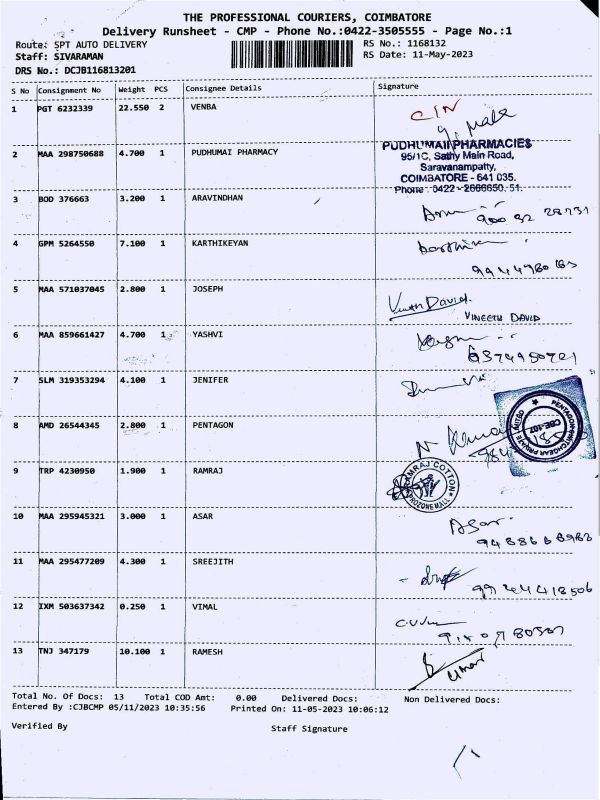 THE PROFESSIONAL COURIERS, COIMBATORE
Delivery Runsheet - CMP - Phone No.:0422-3505555 - Page No.:1
Route: SPT AUTO DELIVERY RS No.: 1168132
Staff: SIVARAMAN RS Date: 11-May-2023
DRS No.: DCJB116813201
S No Consignment No Weight PCS Consignee Details Signature
1 PGT 6232339 22.550 2 VENBA
2 MAA 298750688 4.700 1 PUDHUMAI PHARMACY
PUDHUMAI PHARMACIES
95/1C, Sathy Main Road,
Saravanampatty,
COIMBATORE - 641 035.
Phone : 0422 - 2666650, 51.
3 BOD 376663 3.200 1 ARAVINDHAN
4 GPM 5264550 7.100 1 KARTHIKEYAN
5 MAA 571037045 2.800 1 JOSEPH
Vineeth David
VINEETH DAVID
6 MAA 859661427 4.700 1 YASHVI
7 SLM 319353294 4.100 1 JENIFER
8 AMD 26544345 2.800 1 PENTAGON
9 TRP 4230950 1.900 1 RAMRAJ
RAMRAJ COTTON
PROZONE MALL
10 MAA 295945321 3.000 1 ASAR
Asar
11 MAA 295477209 4.300 1 SREEJITH
12 IXM 503637342 0.250 1 VIMAL
13 TNJ 347179 10.100 1 RAMESH
Total No. Of Docs: 13 Total COD Amt: 0.00 Delivered Docs: Non Delivered Docs:
Entered By :CJBCMP 05/11/2023 10:35:56 Printed On: 11-05-2023 10:06:12
Verified By Staff Signature